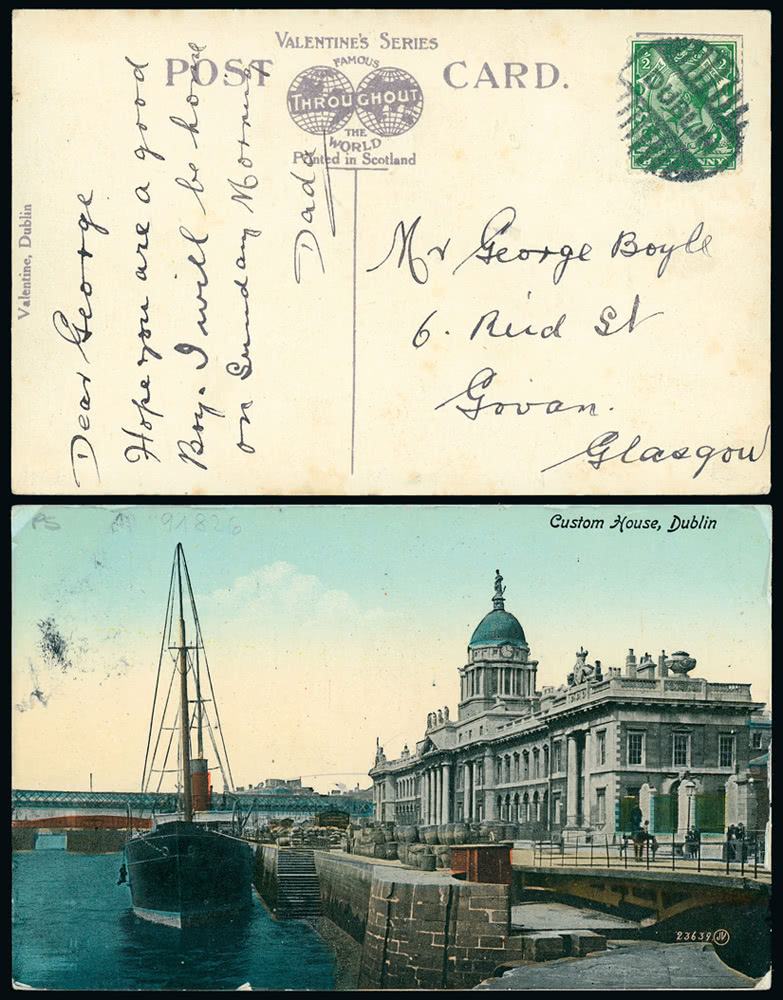 VALENTINE'S SERIES
POST CARD.
FAMOUS
THROUGHOUT
THE
WORLD
Printed in Scotland
Valentine, Dublin
Dear George
Hope you are a good
Boy. I will be home
on Sunday Morning
Dada
½ ½
DUBLIN
PENNY
Mr George Boyle
6. Reid St
Govan.
Glasgow
91826
Custom House, Dublin
23639 JV